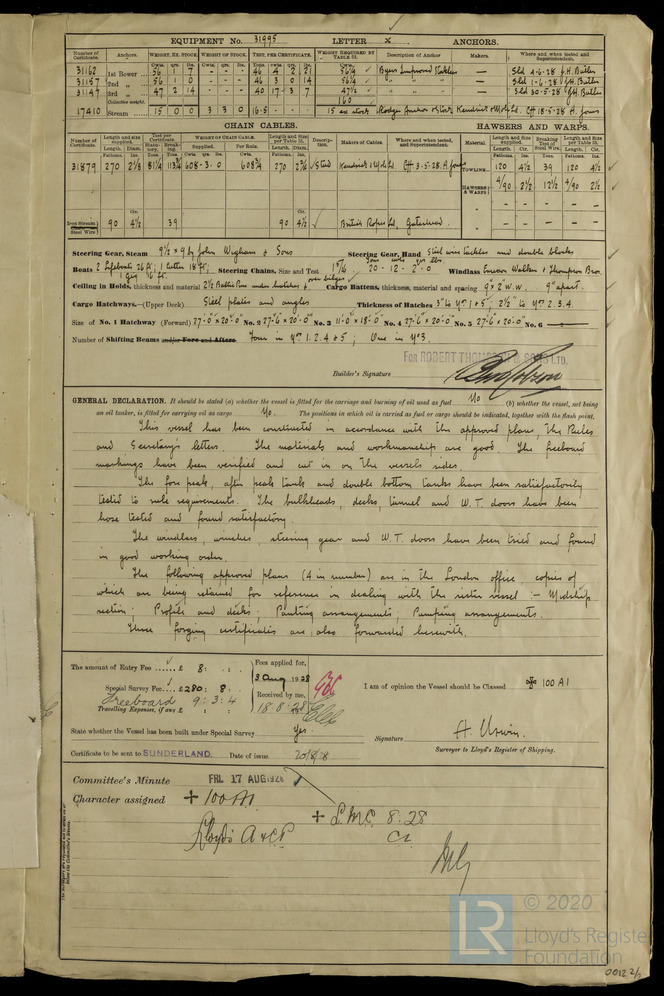 EQUIPMENT No. 31995 LETTER X ANCHORS.
Number of Certificate. Anchors. WEIGHT, EX. STOCK. WEIGHT OF STOCK. TEST, PER CERTIFICATE. WEIGHT REQUIRED BY TABLE 31. Description of Anchor Makers. Where and when tested and Superintendent.
Cwts. qrs. lbs. Cwts. qrs. lbs. Tons. cwts. qrs. lbs. Cwts.
31162 1st Bower 56 1 7 - - - 46 4 2 21 56¼ Byers Improved Stockless — Sld 4-6-28 J.H. Butler
31157 2nd „ 56 1 0 - - - 46 3 0 14 56¼ „ „ — Sld 1-6-28 J.H. Butler
31147 3rd „ 47 2 14 - - - 40 17 3 7 47½ „ „ — Sld 30-5-28 J.H. Butler
Collective weight. 160
17410 Stream 15 0 0 3 3 0 16-5 15 ex stock Rodger Anchor & Stock Kendrick & Mole Ld. Cff 18-5-28 A. Jones
CHAIN CABLES. HAWSERS AND WARPS.
Number of Certificate. Length and size supplied. Test per Certificate. WEIGHT OF CHAIN CABLE. Length and Size per Table 31. Description. Makers of Cables. Where and when tested, and Superintendent. Material. Length and Size supplied. Breaking Test of Steel Wire. Length and Size per Table 31.
Length. Diam. Statutory. Breaking. Supplied. Per Rule. Length. Diam. Length. Cir. Length. Cir.
31879 270 2⅜ 81¼ 113¾ 608-3-0 608¾ 270 2⅜ Stud Kendrick & Mole Ld. Cff 3-5-28 A. Jones TOWLINE 120 4½ 39 120 4½
HAWSERS & WARPS 4/90 2½ 12½ 4/90 2½
Iron Stream Steel Wire 90 4½ 39 90 4½ British Ropes Ld, Gateshead
Steering Gear, Steam 9½ x 9 by John Wigham & Sons Steering Gear, Hand Steel wire tackles and double blocks
Boats 2 Lifeboats 26 ft; 1 cutter 18 ft; 1 Gig 16 ft. Steering Chains, Size and Test 1 5/16 20-12-2-0 Windlass Emerson Walker & Thompson Bros.
Ceiling in Holds, thickness and material 2½ Baltic Pine under hatches & over bilges Cargo Battens, thickness, material and spacing 9" x 2" W.W. 9" apart.
Cargo Hatchways.—(Upper Deck) Steel plates and angles Thickness of Hatches 3" to Nos 1 & 5, 2½" to Nos 2.3.4.
Size of No. 1 Hatchway (Forward) 27'-0" x 20'-0" No. 2 27'-6" x 20'-0" No. 3 11'-0" x 18'-0" No. 4 27'-6" x 20'-0" No. 5 27'-6" x 20'-0" No. 6 —
Number of Shifting Beams and/or Fore and Afters Four in Nos 1.2.4 & 5; One in No 3.
For ROBERT THOMPSON & SONS Ltd.
Builder's Signature
GENERAL DECLARATION. It should be stated (a) whether the vessel is fitted for the carriage and burning of oil used as fuel No (b) whether the vessel, not being
an oil tanker, is fitted for carrying oil as cargo No. The positions in which oil is carried as fuel or cargo should be indicated, together with the flash point.
This vessel has been constructed in accordance with the approved plans, the Rules
and Secretary's letters. The materials and workmanship are good. The freeboard
markings have been verified and cut in on the vessels sides.
The fore peak, after peak tank and double bottom tanks have been satisfactorily
tested to rule requirements. The bulkheads, decks, tunnel and W.T. doors have been
hose tested and found satisfactory.
The windlass, winches, steering gear and W.T. doors have been tried and found
in good working order.
The following approved plans (4 in number) are in the London office, copies of
which are being retained for reference in dealing with the sister vessel :- Midship
section; Profile and decks; Panting arrangements; Pumping arrangements.
Three forging certificates are also forwarded herewith.
The amount of Entry Fee ...... £ 8 : : Fees applied for, 3 Aug 1928
Special Survey Fee.... £280 : 8 : Received by me, 18.8.28
Freeboard 9 : 3 : 4
Travelling Expenses, if any £ : :
I am of opinion the Vessel should be Classed ✠ 100 A1
State whether the Vessel has been built under Special Survey Yes. Signature A. Urwin.
Surveyor to Lloyd's Register of Shipping.
Certificate to be sent to SUNDERLAND. Date of issue 20/8/28
Committee's Minute FRI. 17 AUG 1928
Character assigned + 100A1
+ L.M.C. 8:28
Lloyd's A & C.P. CL
© 2020
LR
Lloyd's Register
Foundation
0012 2/2